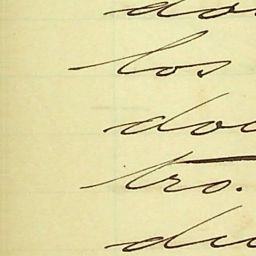 do
los
do
tro.
du